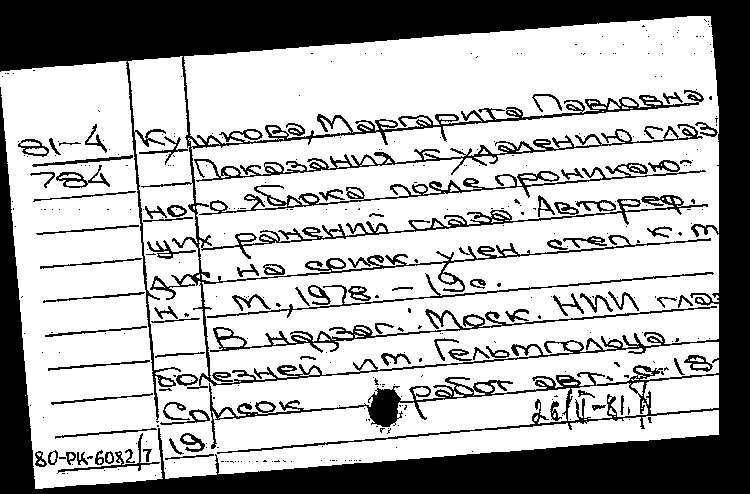 Куликова, Маргарита Павловна.
81-4
784
Показания к удалению глаз
ного яблока после проникаю-
щих ранений глаза: Автореф.
дис. на соиск. учен. степ. к. м
н. - М., 1978. - 19 с.
В надзаг.: Моск. НИИ глаз
болезней им. Гельмгольца.
Список работ авт.: с. 18-
19.
26/II-81.
80-РК-6082/7